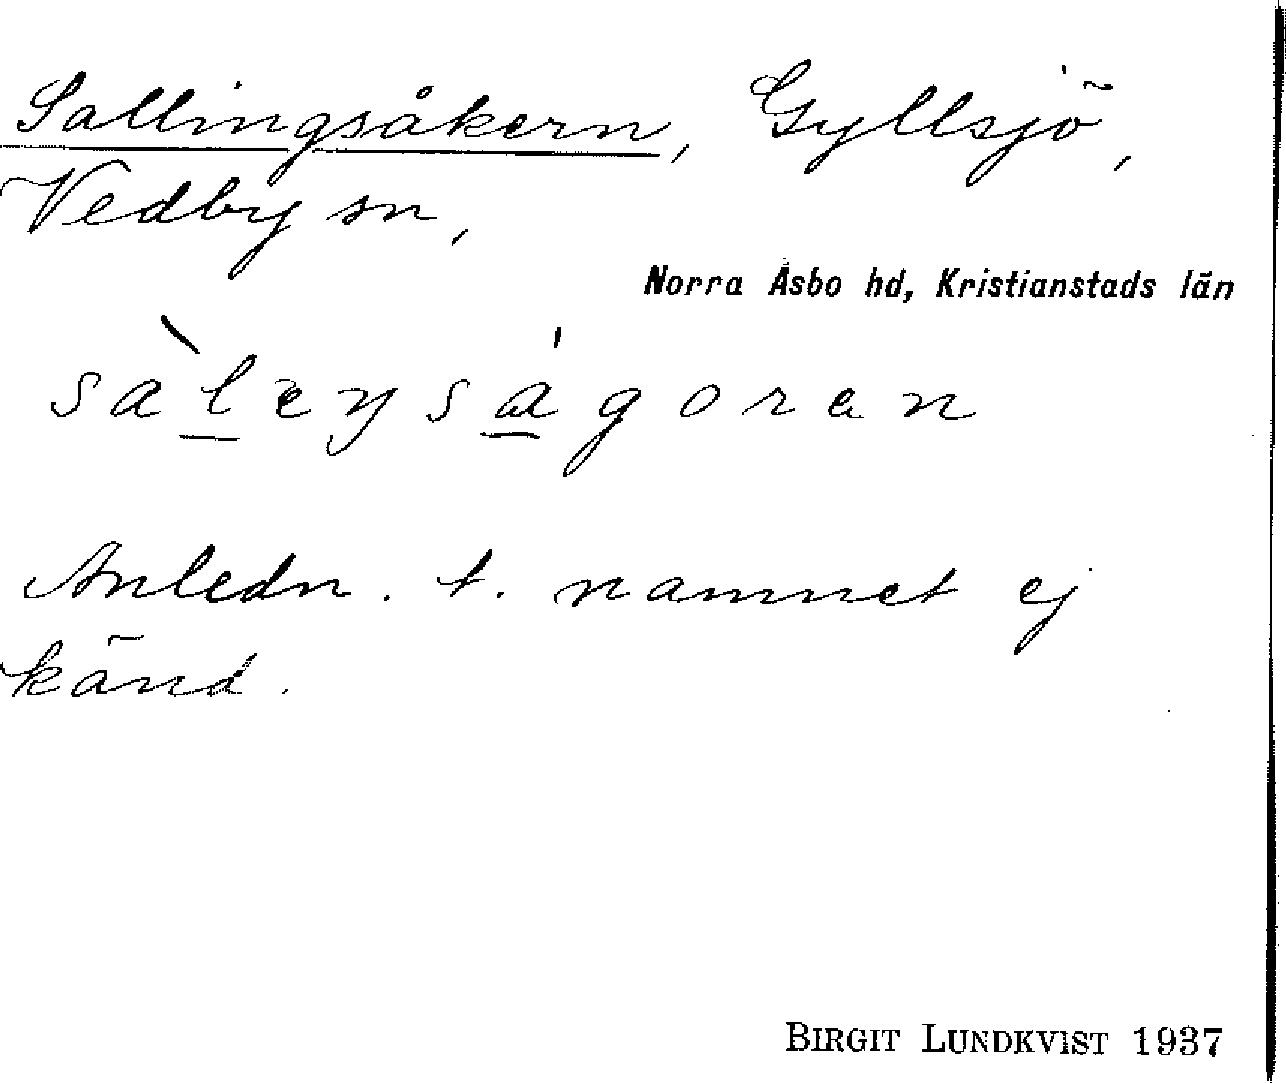 Sallingsåkern, Gyllsjö,
Vedby sn,
Norra Åsbo hd, Kristianstads län
Anledn. t. namnet ej
känd.
BIRGIT LUNDKVIST 1937